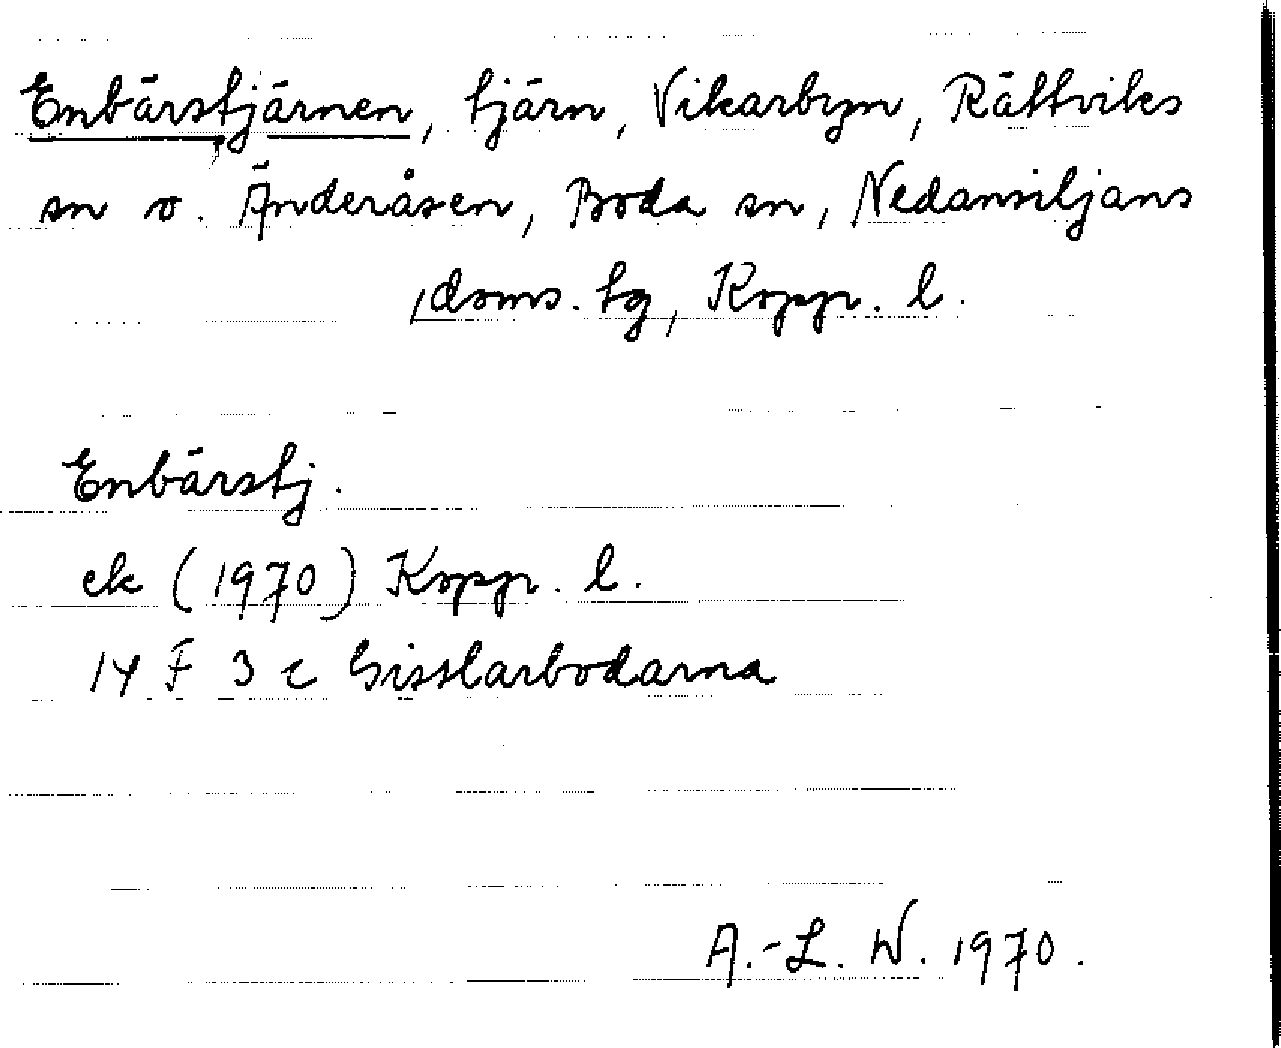 Enbärstjärnen, tjärn, Vikarbyn, Rättviks
sn o. Änderåsen, Boda sn, Nedansiljans
doms. tg, Kopp. l.
Enbärstj.
ek (1970) Kopp. l.
14 F 3 c Gisslarbodarna
A.-L. W. 1970.